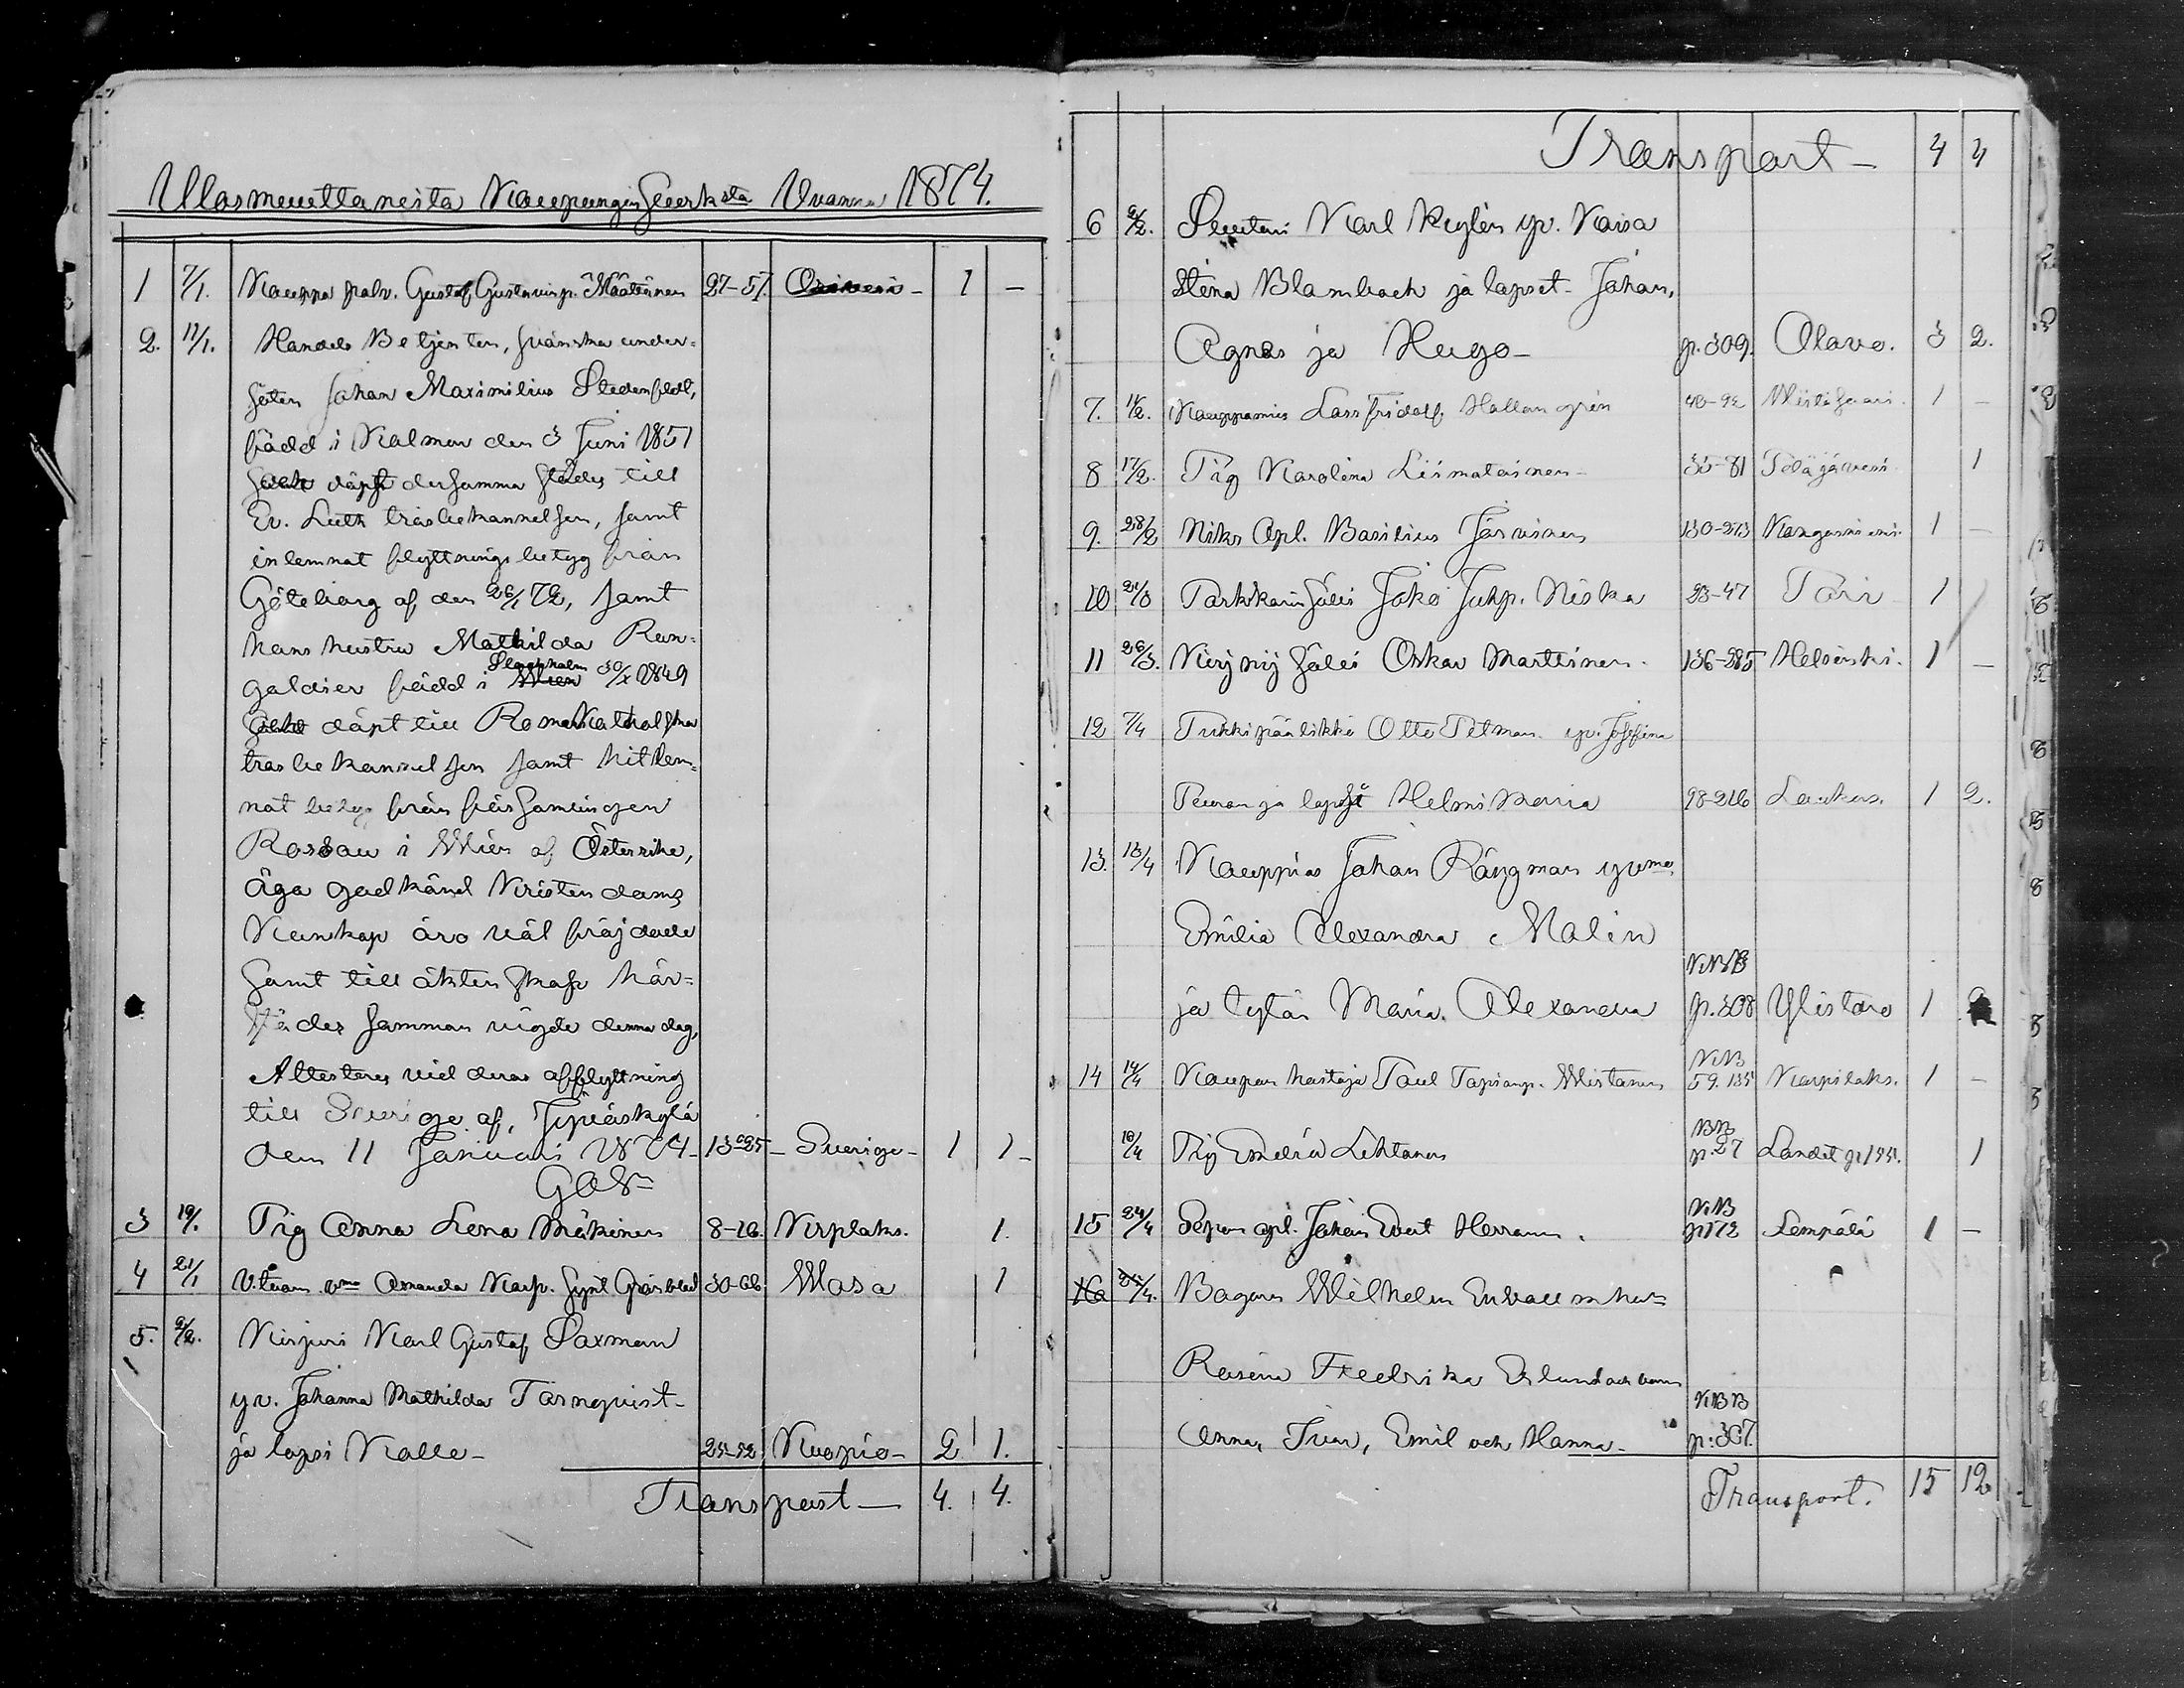 Ulosmuuttaneita Kaupungin Seurksta Vuonna 1874.
1 7/1. Kauppa palv. Gustaf Gustavinp. Määttinen 27-57. 1 -
2. 11/1. Handels Betjenten, svänska under-
såten Johan Maximilius Stedenfeldt,
född i Kalmar den 3 Juni 1851
döpt dersamma städes till
Ev. Luth trosbekännelsen, samt
inlemnat flyttnings betyg från
Göteborg af den 26/1 72, samt
hans hustru Mathilda Run-
galdier född i Stockholm 30/x 1849
döpt till Romersk Katholska
trosbekännelsen samt hitlem-
nat betyg från församlingen
Rossau i Wien af Österrike,
äga godkänd Kristendoms
Kunskap äro väl fräjdade
samt till äktenskap här-
städes samman vigde denna dag,
Attesteras vid deras afflyttning
till Sverige af, Jyväskylä
den 11 Januari 1874- 13-25 - Sverige - 1 1 -
3 19/1. Pig Anna Lena Mäkinen 8-16. Krplaks. 1.
4 21/1 Amanda Karp. 30-66 Wasa 1
5. 2/2. Kirjuri Karl Gustaf Saxman
yv. Johanna Mathilda Törnqvist -
ja lapsi Kalle - 25-52. Kuopio - 2 1.
Transport - 4. 4.
Transport - 4 4
6 9/2. Suutari Karl Kylén yv. Kaisa
Stina Blambach ja lapset Johan,
Agnes ja Hugo - p. 309. Alavo. 3 2.
7. 11/2. Kauppamies Lars Fridolf Hallongrén 40-92 Wiitasaari. 1 -
8 17/2. Pig Karolina Liimatainen - 35-81 Petäjävesi. 1
9. 28/2 Nik. Opl. Basilius Järvinen 130-273 Kangasniemi. 1 -
10 21/3 Parkkarin Säli Joko Juhp. Niska 23-47 Pori 1
11 26/3. Kirj nij Säli Oskar Marttinen. 136-285 Helsinki. 1 -
12 7/4 Tukkipäälikkö Otto Petman yv. Josefina
Peuran ja lapset Helmi Maria 98-216 Laukas. 1 2.
13. 13/4 Kauppias Johan Rångman yvmo
Emilia Alexandra Malin
KBB
ja tytär Maria Alexandra p. 308 Ylistaro 1
14 14/4 Kaupan hoitaja Paul Tapianp. Wistanen KB 59. 135 Karpilaks. 1 -
18/4 Pig Lehtonen BB p. 27 Landet 1
15 24/4 Sepän opl. Johan Evert Herranen. KB p172 Lempälä 1 -
16 24/4. Bagare Wilhelm Enwall m hu
Rosina Fredrika Eklund och barn
KBB
Anna, Ivar, Emil och Hanna - p: 307.
Transport. 15 12